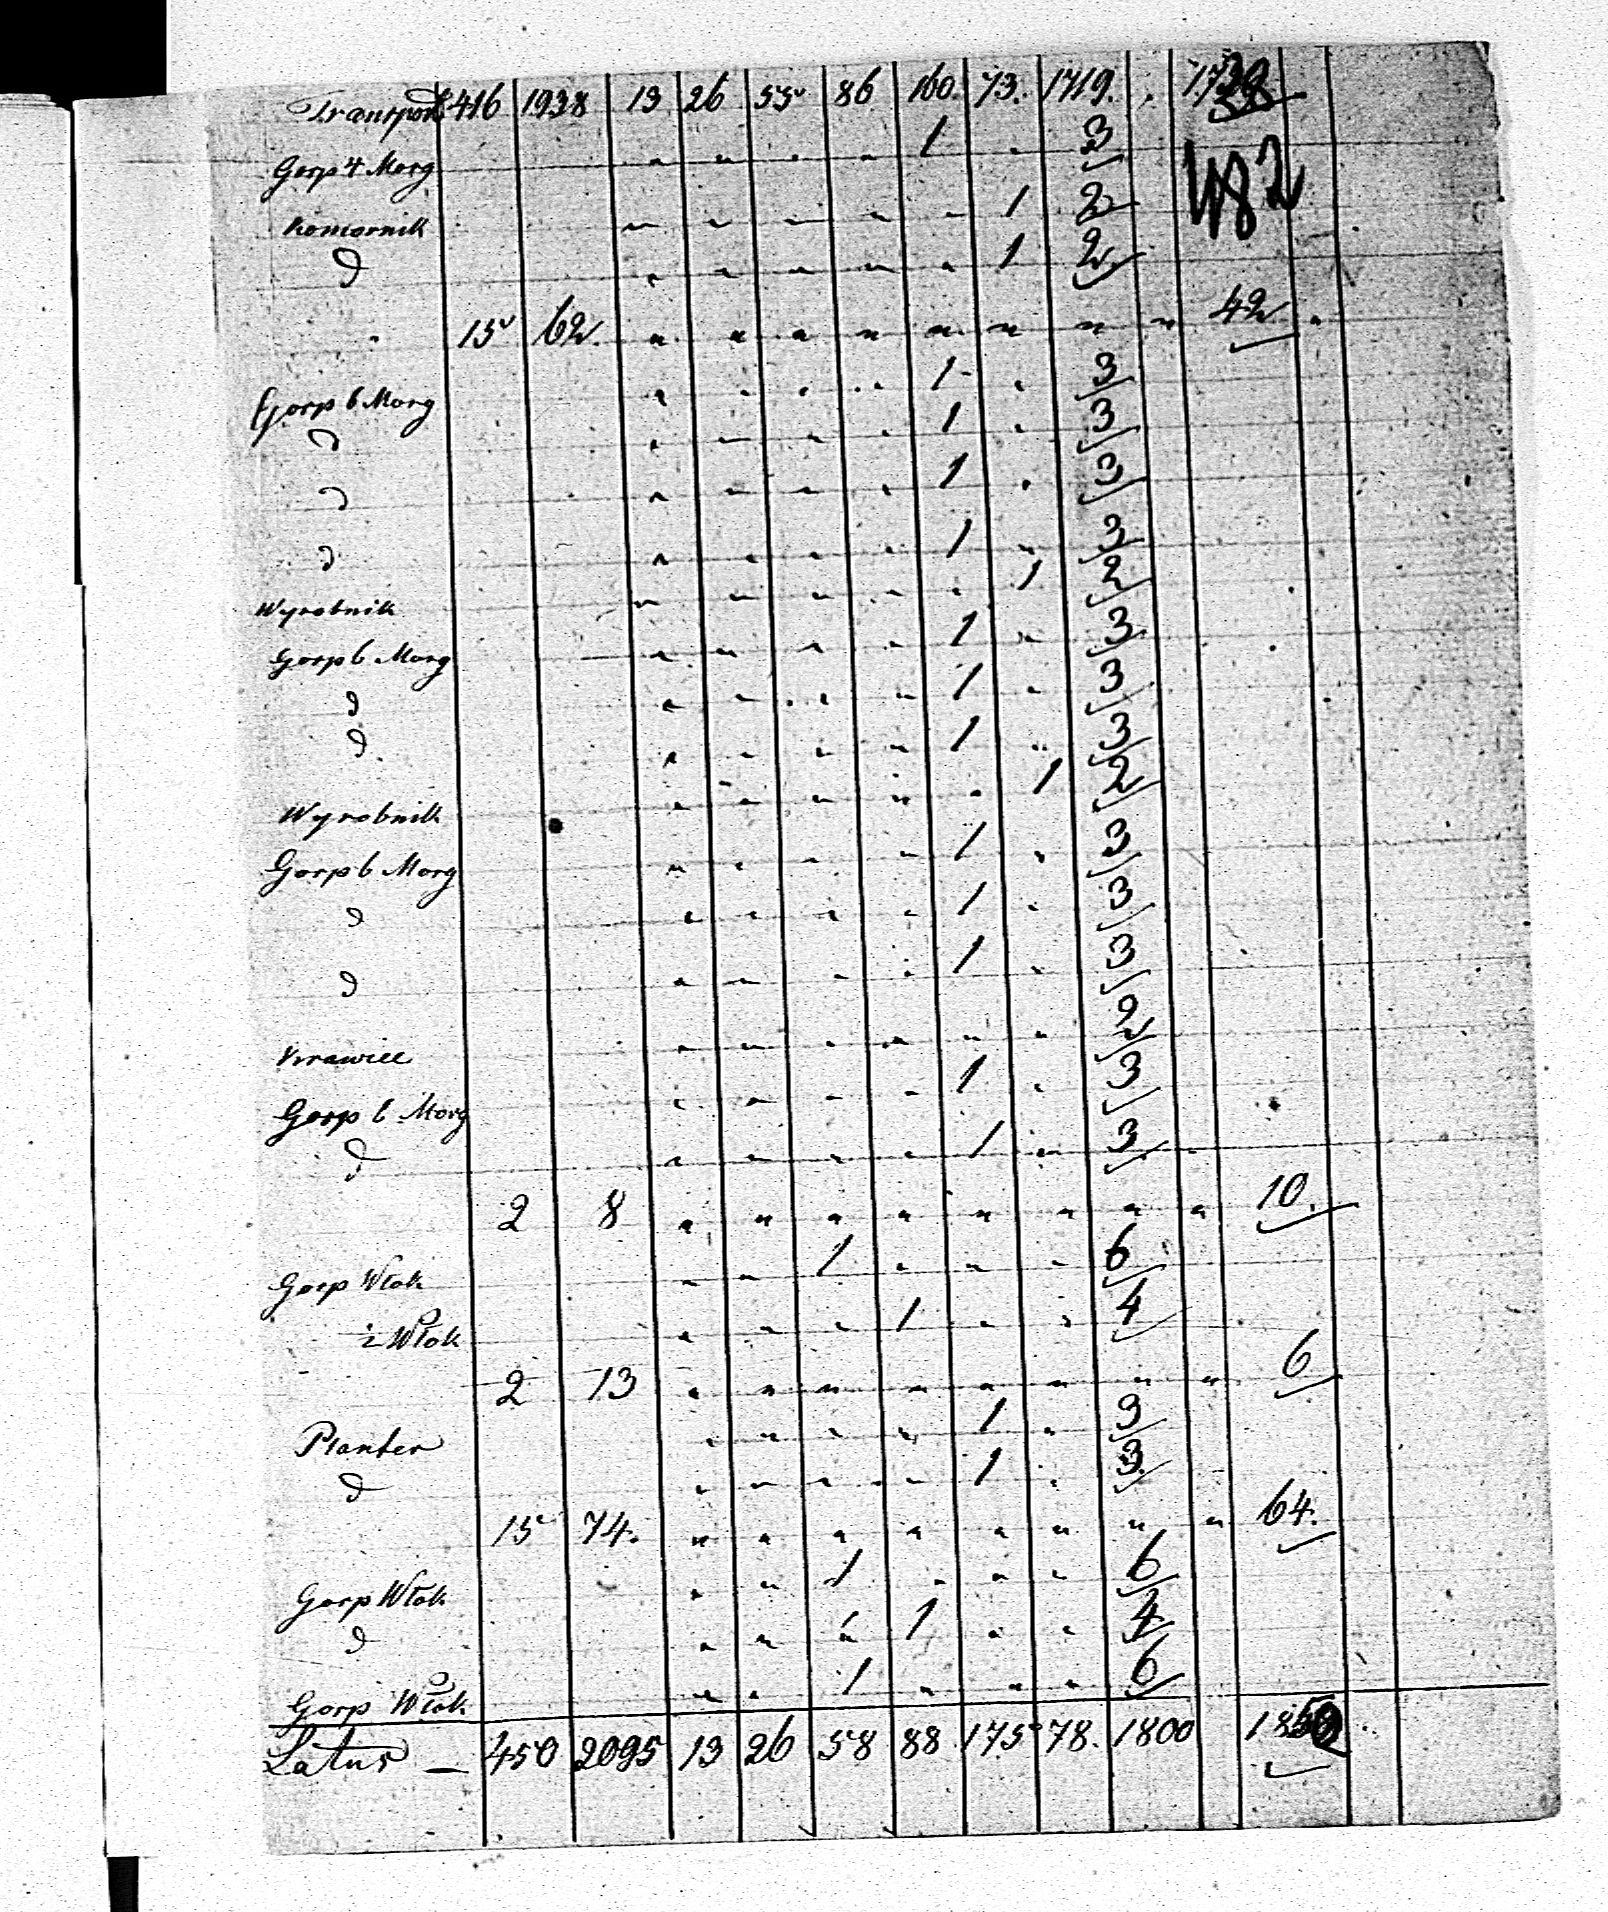 Transport 416 1938 13 26 55 86 160. 73. 1719. 1738
Gosp 4 Morg " " " " 1 " 3
482
Komornik " " " " " 1 2
d " " " " " 1 2
" 15 62. " " " " " " " " 42 "
Gosp 6 Morg " " " " 1 " 3
d " " " " 1 " 3
d " " " " 1 " 3
d " " " " 1 " 3
Wyrobnik " " " " " 1 2
Gosp 6 Morg " " " " 1 " 3
d " " " " 1 " 3
d " " " " 1 " 3
Wyrobnik " " " " " 1 2
Gosp 6 Morg " " " " 1 " 3
d " " " " 1 " 3
d " " " " 1 " 3
Krawiec " " " " " " 2
Gosp 6 Morg " " " " 1 " 3
d " " " " 1 " 3
2 8 " " " " " " " " 10.
Gosp Włok " " 1 " " " 6
Włok " " " 1 " " 4
2 13 " " " " " " " " 6
Planter " " " " 1 " 3
d " " " " 1 " 3
15 74. " " " " " " " " 64.
Gosp Włok " " 1 " " " 6
d " " " 1 " " 4
Gosp Włok " " 1 " " " 6
Latus — 450 2095 13 26 58 88 175 78. 1800